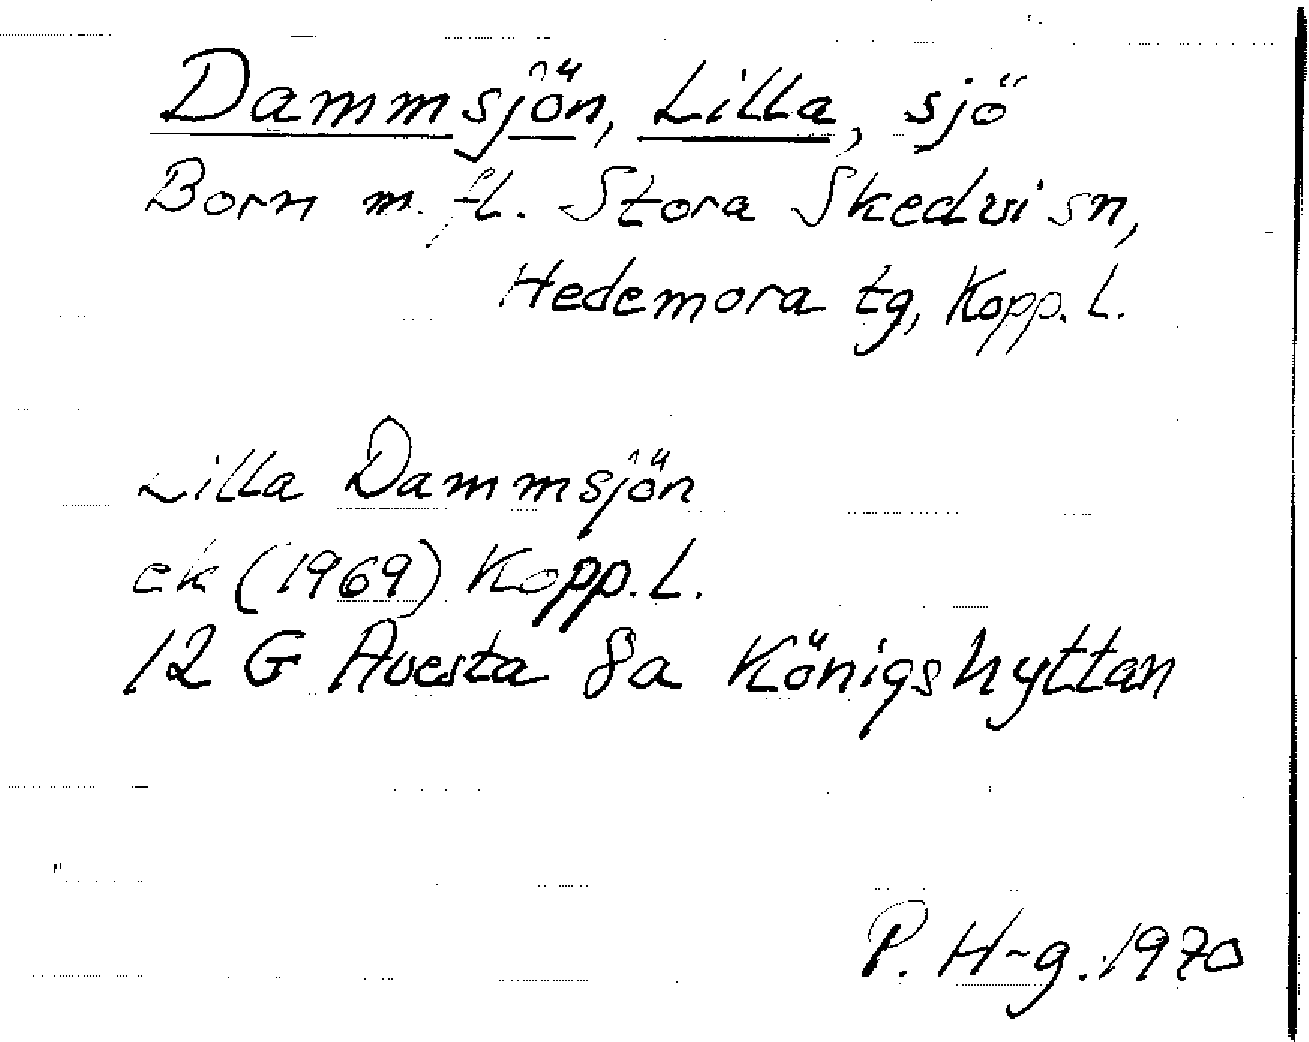 Dammsjön, Lilla, sjö
Born m. fl. Stora Skedvi sn,
Hedemora tg, Kopp. L.
Lilla Dammsjön
ek (1969) Kopp. L.
12 G Avesta 8a Königshyttan
P. H-g. 1970